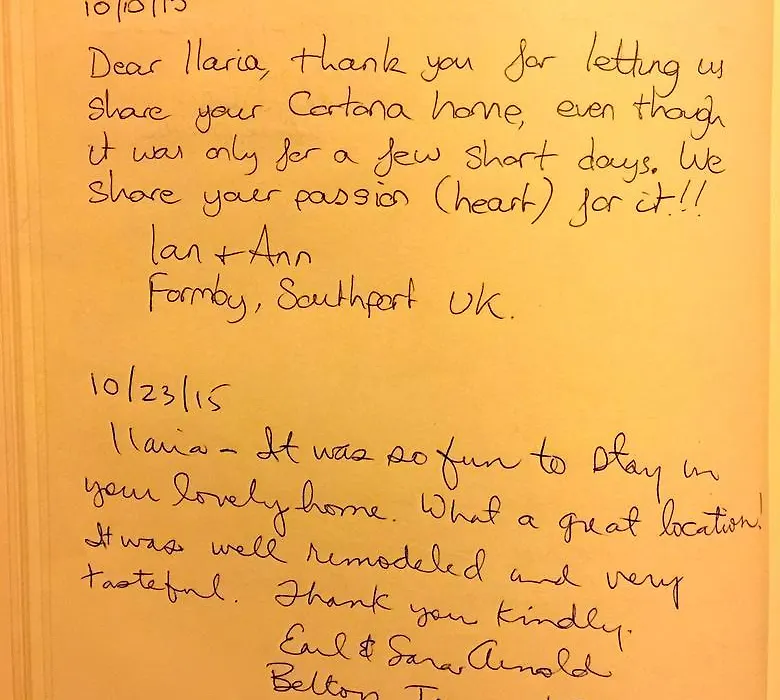 10/10/15
Dear Ilaria, thank you for letting us
share your Cortona home, even though
it was only for a few short days. We
share your passion (heart) for it!!
Ian + Ann
Formby, Southport UK.
10/23/15
Ilaria - It was so fun to stay in
your lovely home. What a great location!
It was well remodeled and very
tasteful. Thank you kindly.
Earl & Sara Arnold
Belton